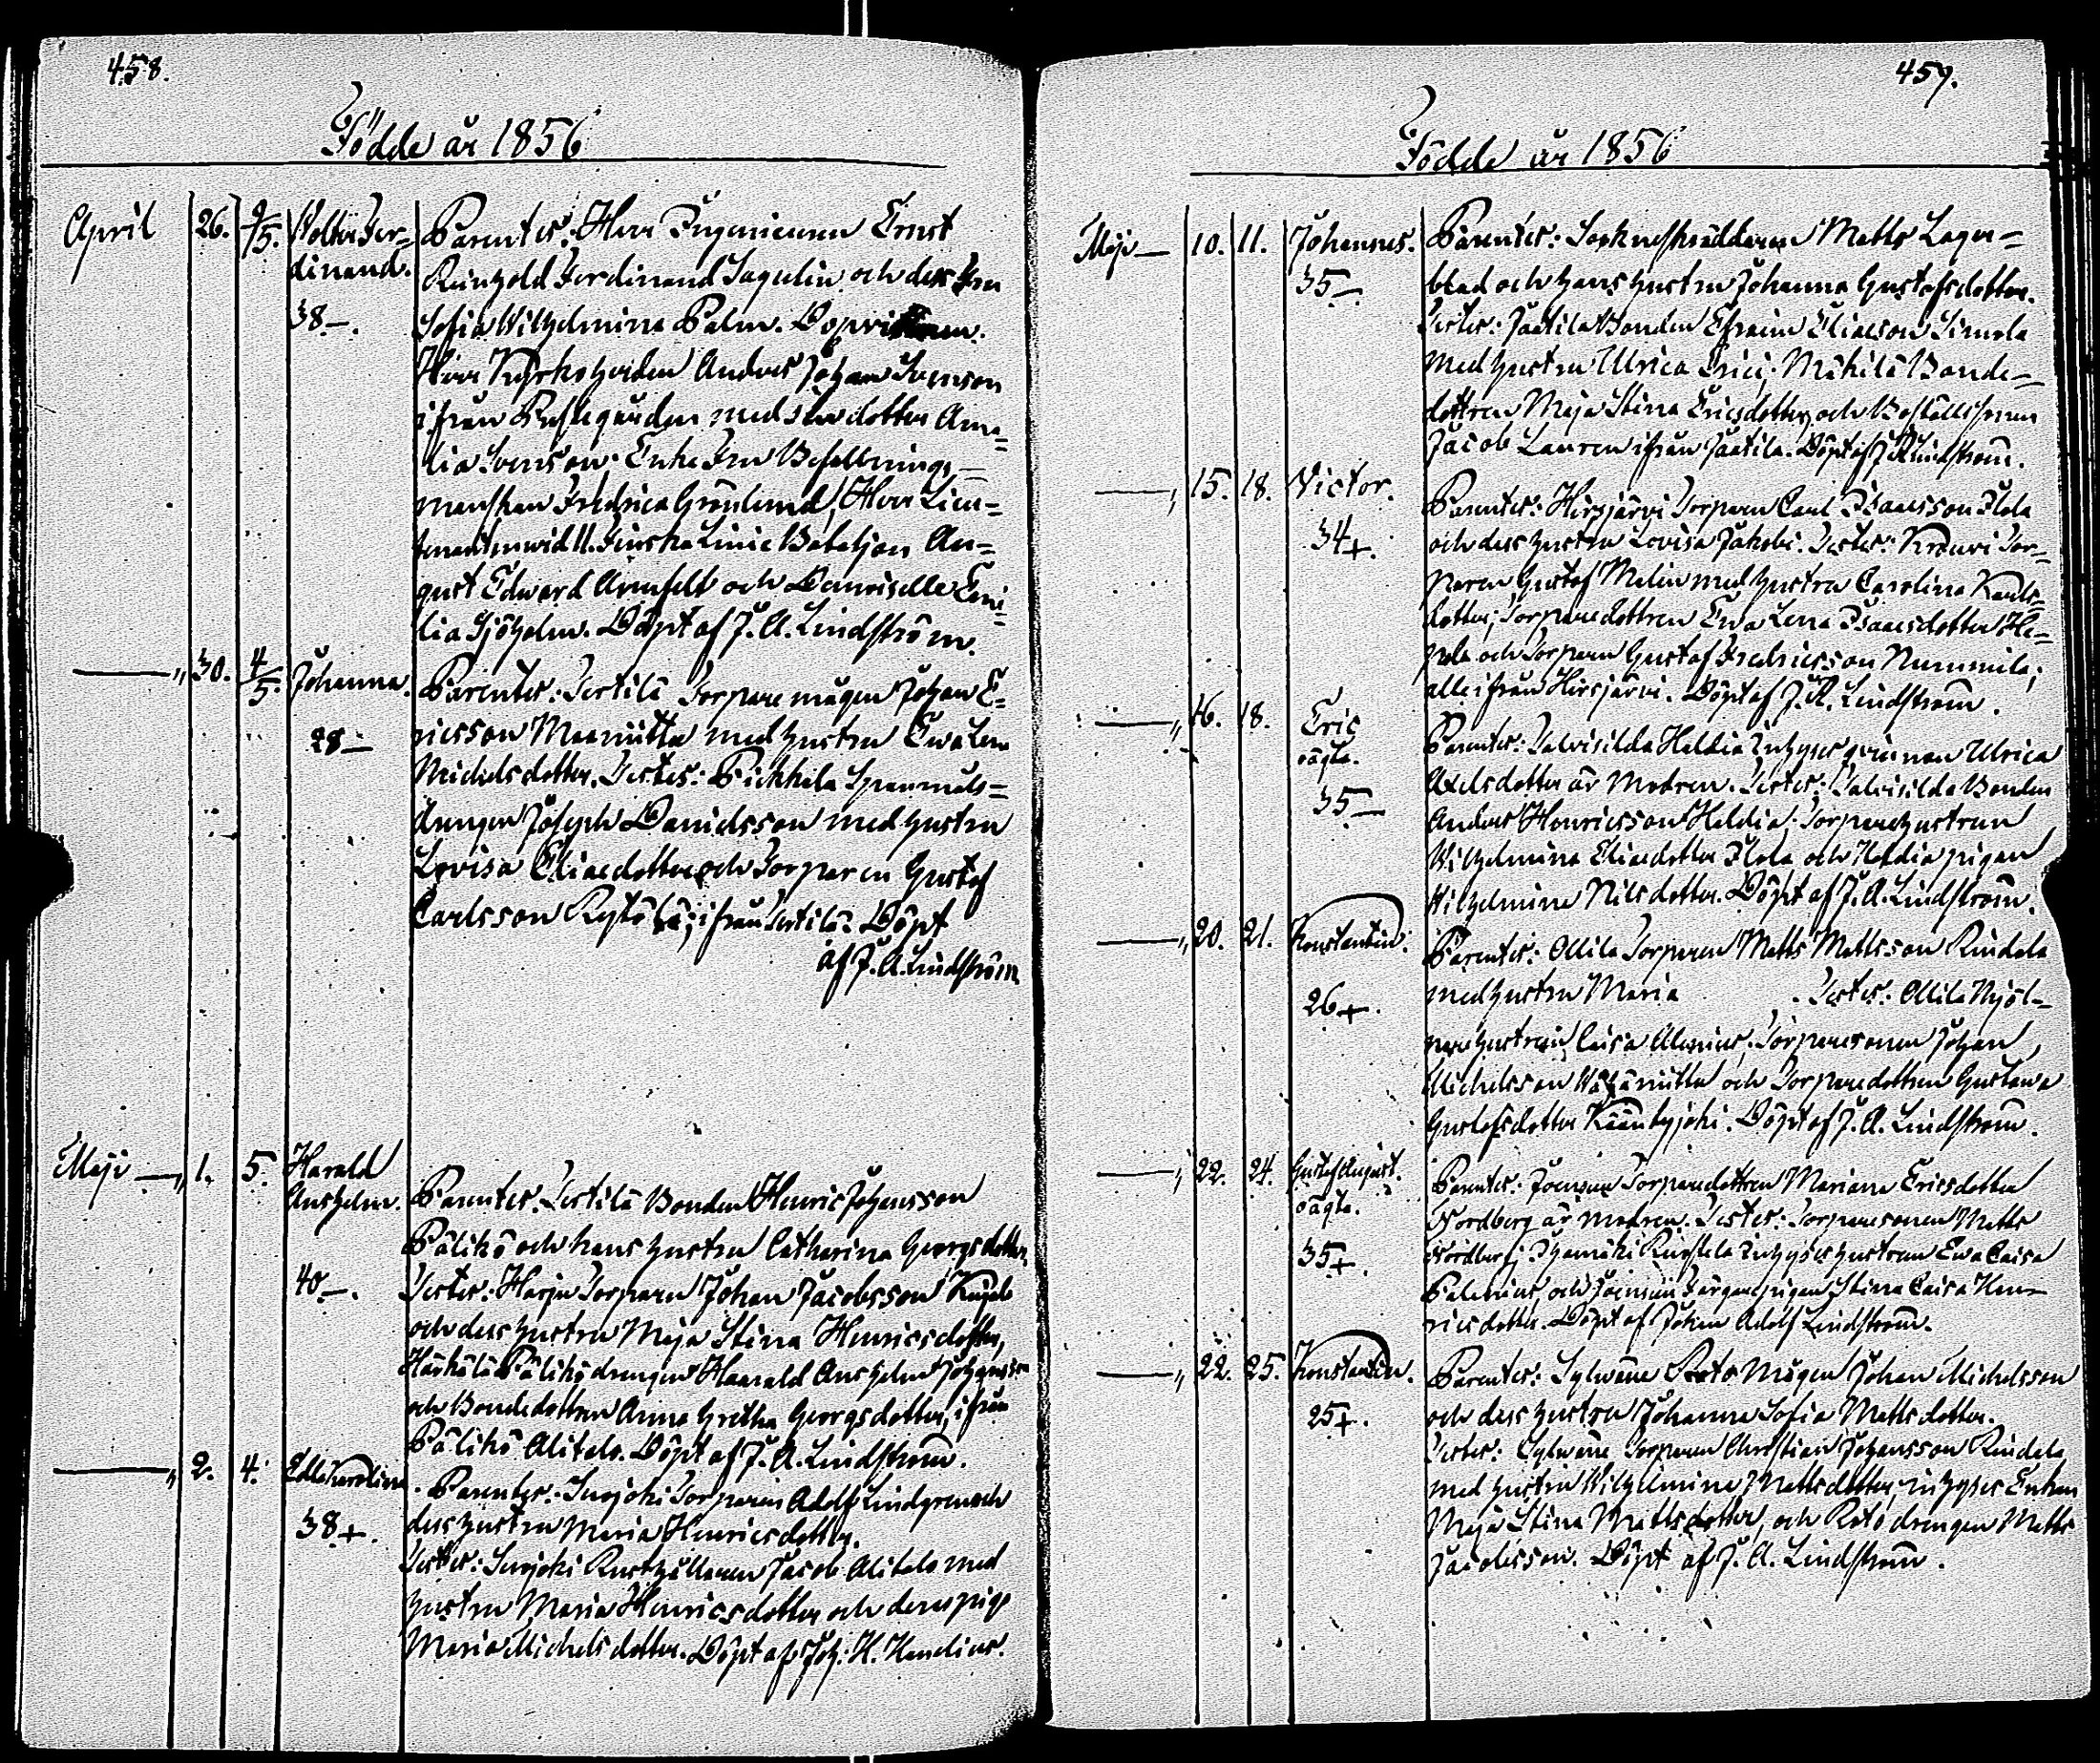 458.
Födde år 1856
April 26. 2/5. Wolter Fer=
dinand.
38–.
Parentes: Herr Ingenieuren Ernst
Reinhold Ferdinand Sagulin och dess Fru
Sofia Wilhelmina Palm.
Herr Kyrkoherden Anders Johan Svenson
ifrån Prestegården med dotter Ama=
lia Svenson; Enke Fru Befallnings=
manskan Fredrica Grönlund, Herr Lieu=
tenanten wid II. Finska Linie Bataljon Au=
gust Edward Armfelt och Demoiselle Emi=
lia Sjöholm. Döpt af J. A. Lindström.
—„ 30. 4/5. Johanna.
28–
Parentes: Sertilä Torpare mågen Johan E=
ricsson Maamitta med hustru Ewa Lena
Michelsdotter. Testes: Pickhala Spannmåls=
drengen Joseph Danielsson med hustru
Lovisa Eliaedotter och Torparen Gustaf
Carlsson Kytölä; ifrån Sertilä. Döpt
af J. A. Lindström
Maji —„ 1. 5. Harald
Anshelm.
40–.
Parentes: Sertilä Bonden Henric Johansson
Pälikö och hans hustru Catharina Georgsdotter,
Testes: Harju Torparen Johan Jacobsson
och dess hustru Maja Stina Henricsdotter,
Pälikö drengen Haarald Anshelm Johansson
och Bondedottren Anna Gretha Georgsdotter, ifrån
Pälikö Alitalo. Döpt af J. A. Lindström.
—„ 2. 4. Edla Karolina.
38+.
Parentes: Suojoki Torparen Adolf Lindgren och
dess hustru Maria Henricsdotter.
Testes: Suojoki Rusthållaren Jacob Alitalo med
hustru Maria Henricsdotter och deras piga
Maria Michelsdotter. Döpt af Joh. H. Kenelius.
459.
Födde år 1856
Maji — 10. 11. Johannes.
35–.
Parentes: Socknskräddaren Matts Lager=
blad och hans hustru Johanna Gustafsdotter.
Testes: Jaatila Bonden Efraim Eliaeson Simola
med hustru Ulrica Erici; Mäkilä Bonde=
dottren Maja Stina Ericsdotter, och
Jacob Lauren ifrån Jaatila. Döpt af J. A. Lindström.
—„ 15. 18. Victor.
34+.
Parentes: Hirsjärvi Torparen Carl Isaacsson Ilola
och dess hustru Lovisa Jakobi. Testes: Krouvi Tor=
paren Gustaf Malin med hustru Carolina Karls=
dotter; Torparedottren Ewa Lena Isaacsdotter He=
pola och Torparen Gustaf Fredricsson Nummila;
alla ifrån Hirsjärvi. Döpt af J. A. Lindström.
—„ 16. 18. Eric
oägta.
35–
Parentes: Talvisilda Haldia Inhyses qvinnan Ulrica
Axelsdotter är Modren. Testes: Talvisilda Bonden
Anders Henricsson Haldia; Torparehustrun
Wilhelmina Eliaedotter Ilola och Haldia pigan
Wilhelmina Nilsdotter. Döpt af J. A. Lindström.
—„ 20. 21. Konstantin.
26+.
Parentes: Ollila Torparen Matts Mattsson Rindala
med hustru Maria . Testes: Ollila Mjöl=
narehustrun Caisa Alenius; Torparesonen Johan
Michelsson och Torparedottren Gustava
Gustafsdotter Kääntyjoki. Döpt af J. A. Lindström.
—„ 22. 24. Gustaf August.
oägta.
35+.
Parentes: Joensuu Torparedottren Mariana Ericsdotter
Nordberg är modren. Testes: Torparesonen Matts
Nordberg; Inhyseshustrun Ewa Caisa
Palenius, och Joensuu pigan Stina Caisa Hen=
ricsdotter. Döpt af Johan Adolf Lindström.
—„ 22. 25. Konstantin.
25+.
Parentes: Sylwäne Roto Mågen Johan Michelsson
och dess hustru Johanna Sofia Mattsdotter.
Testes: Sylwäne Torparen Christian Johansson Rindala
med hustru Wilhelmina Mattsdotter, inhyses Enkan
Maja Stina Mattsdotter, och Roto drengen Matts
Jacobsson. Döpt af J. A. Lindström.